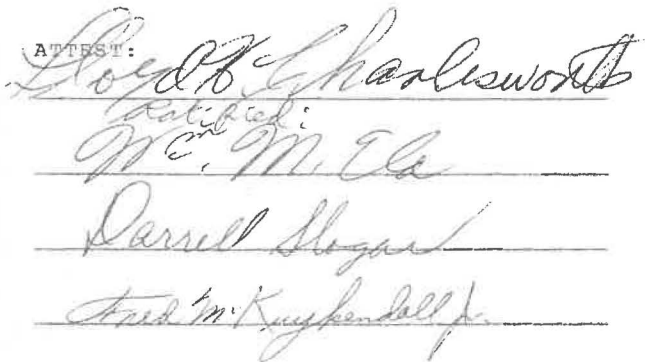 ATTEST:
Lloyd H Charlesworth
Ratified:
Wm. M. Ela
Darrell Slogar
Fred M. Kuykendall Jr.